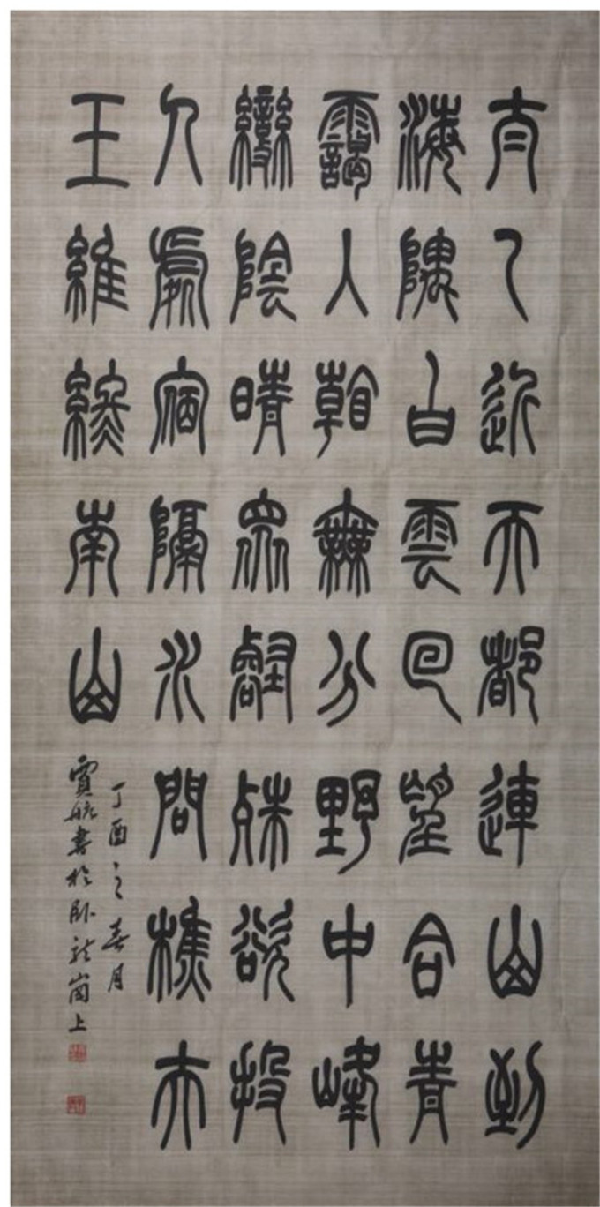 太乙近天都連山到
海隅白雲回望合青
靄入看無分野中峰
變陰晴眾壑殊欲投
人處宿隔水問樵夫
王維終南山
丁酉之春月
書於卧龍崗上